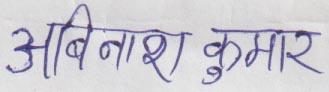 अबिनाश कुमार